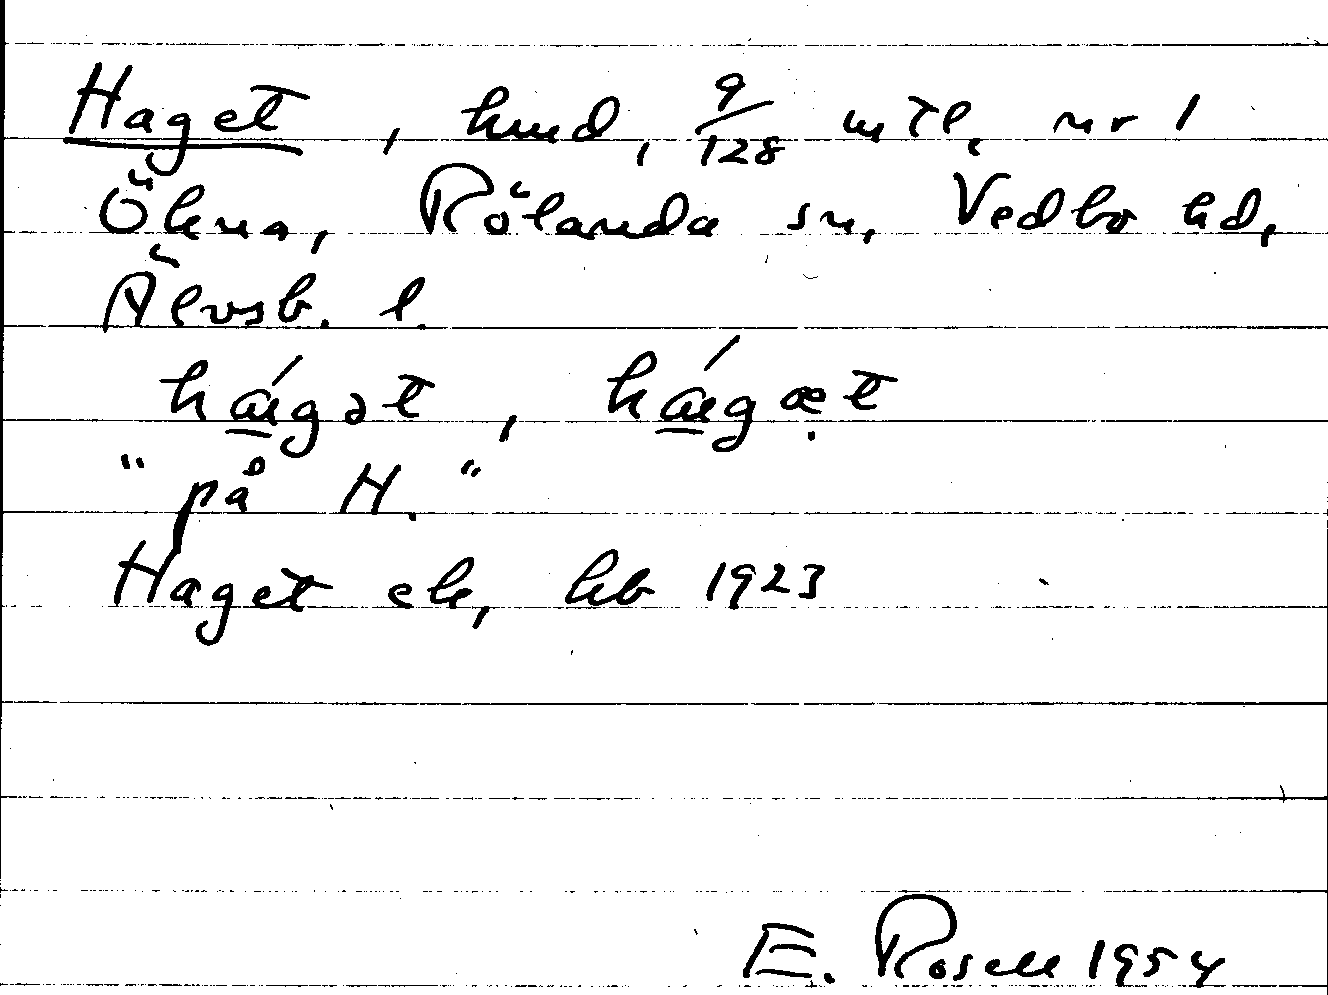 Haget, hmd, 9/128 mtl, nr 1
Ökna, Rölanda sn, Vedbo hd,
Älvsb. l.
hágət, hágæt
"på H."
Haget ek, kb 1923
E. Rosell 1954